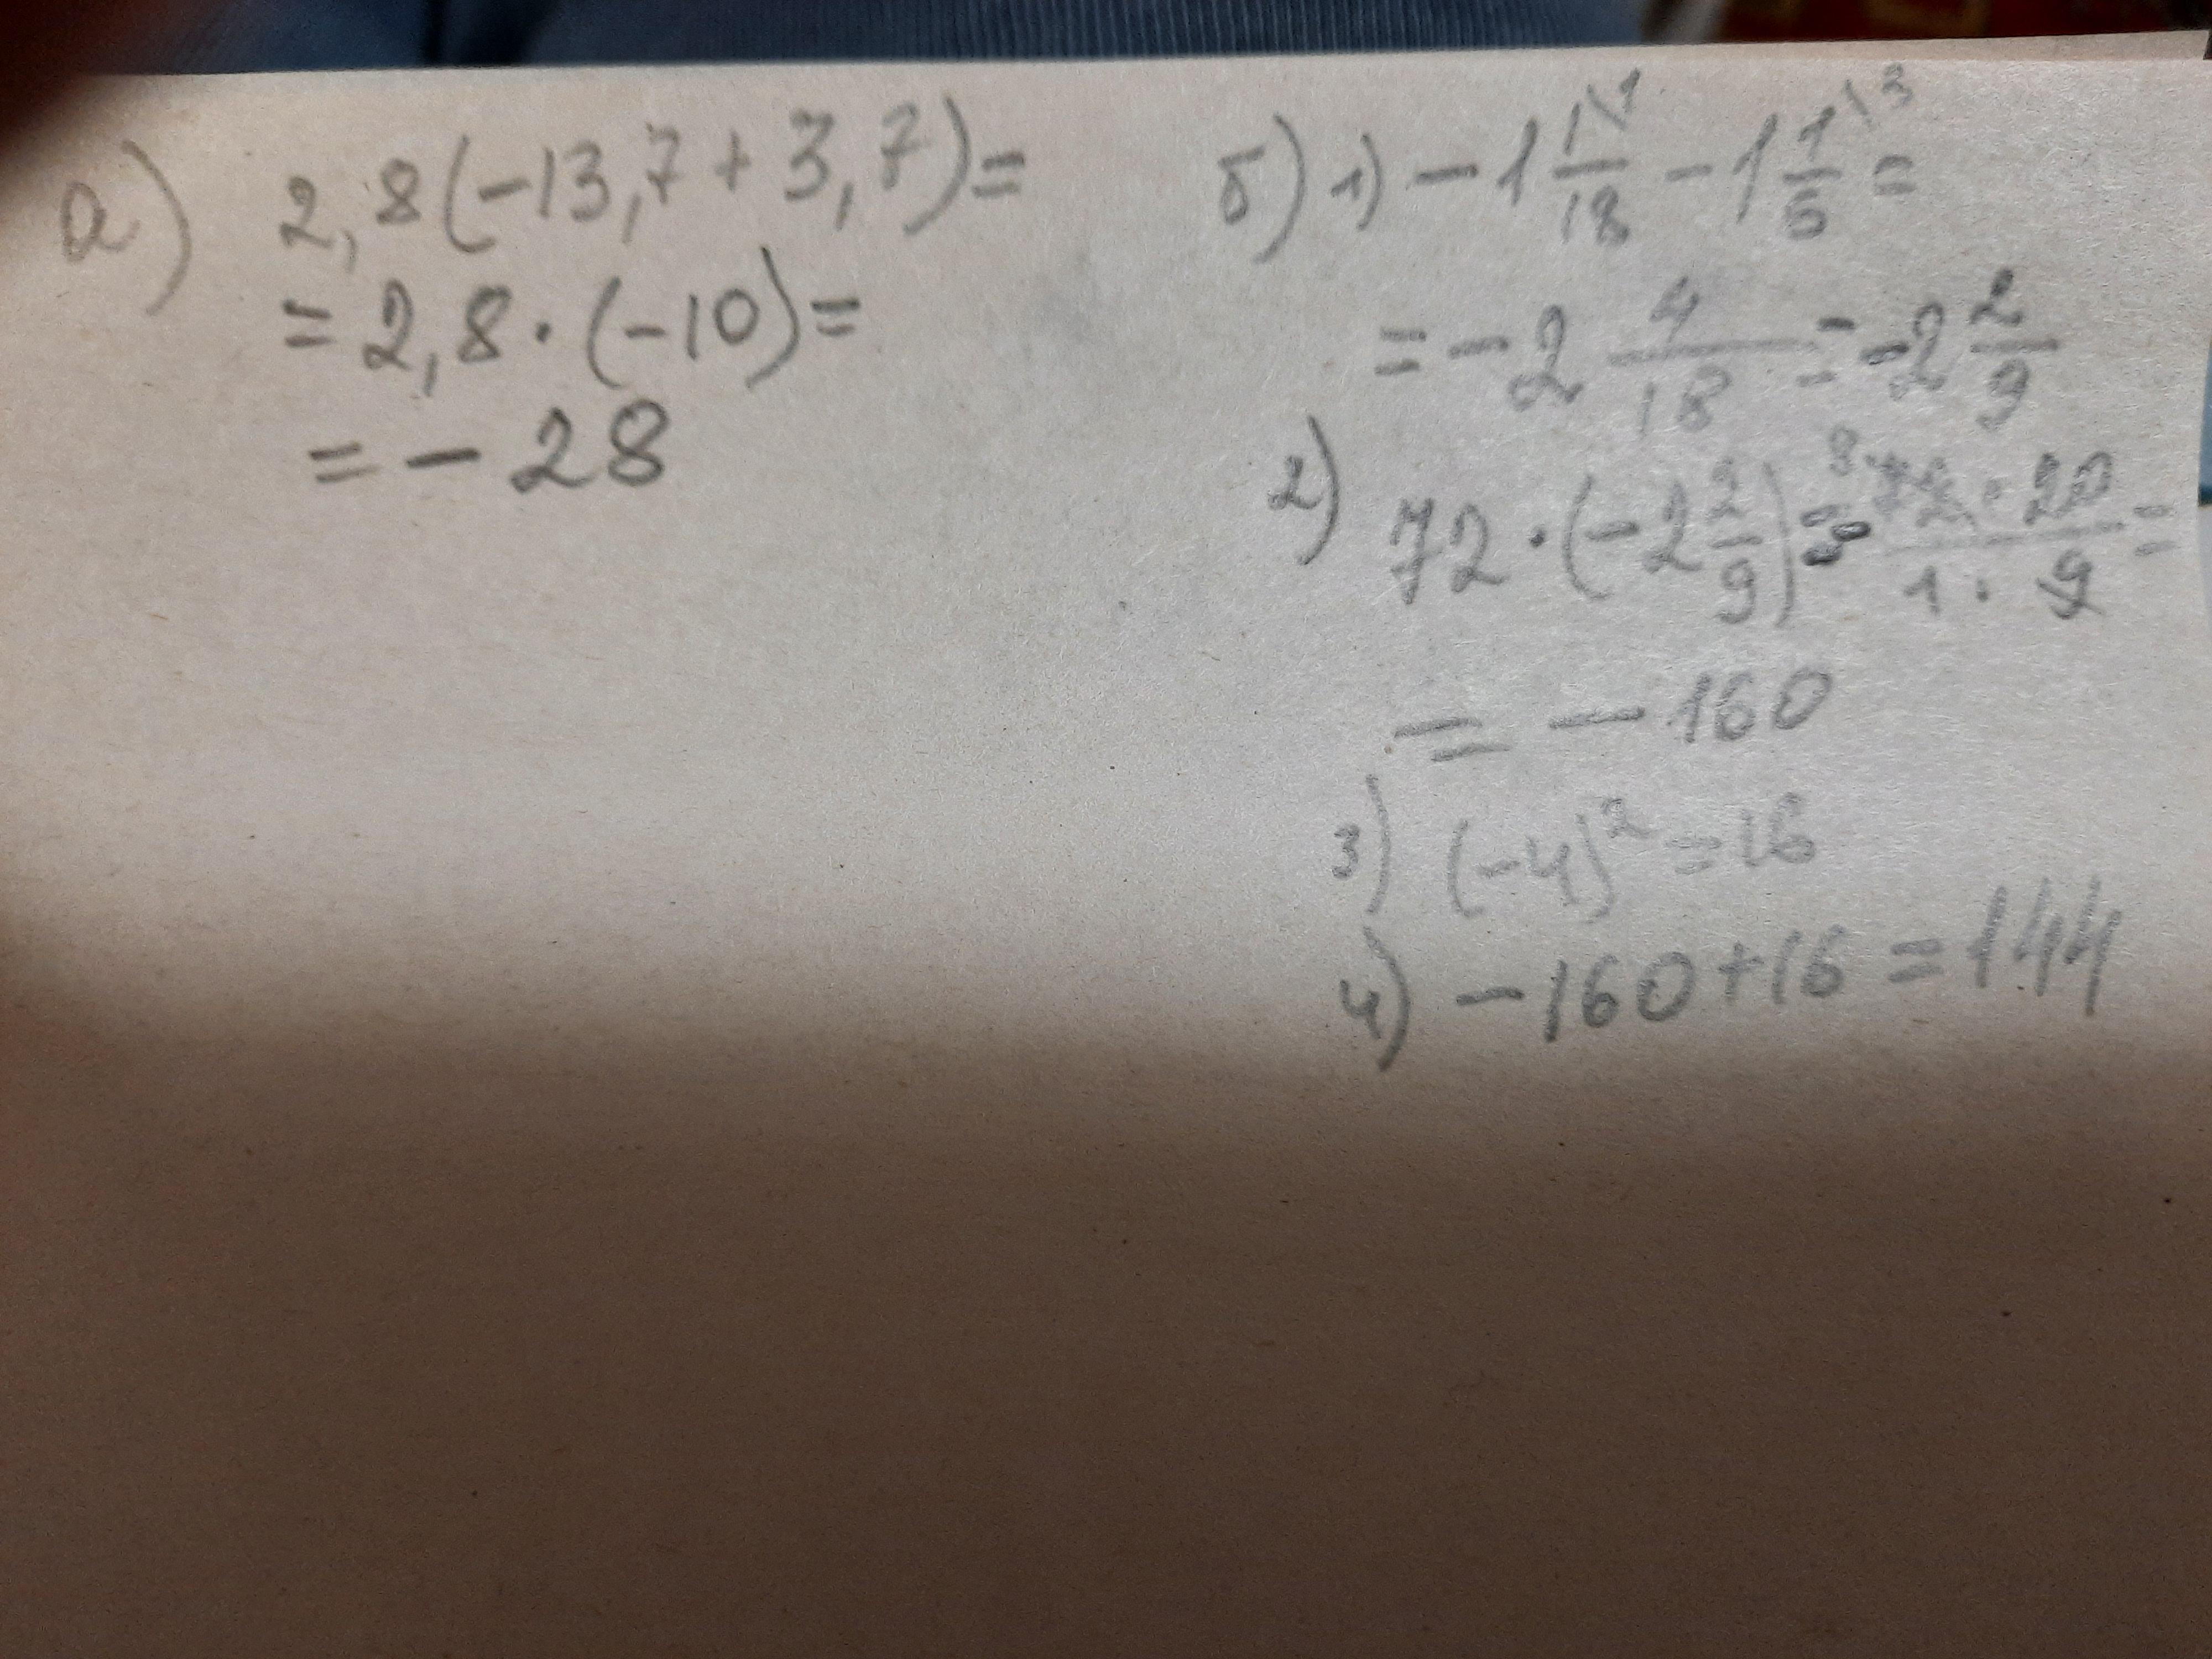 а) 2,8(-13,7+3,7)=
=2,8·(-10)=
=-28
б) 1) -1 1\1/18 - 1 1\3/6 =
= -2 4/18 = -2 2/9
2) 72·(-2 2/9) = 8 72·20/1·9 =
= -160
3) (-4)² = 16
4) -160+16=144